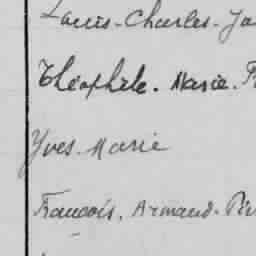 Louis-Charles-Ja
Théophile. Marie. P
Yves-Marie
François. Armand-Pier